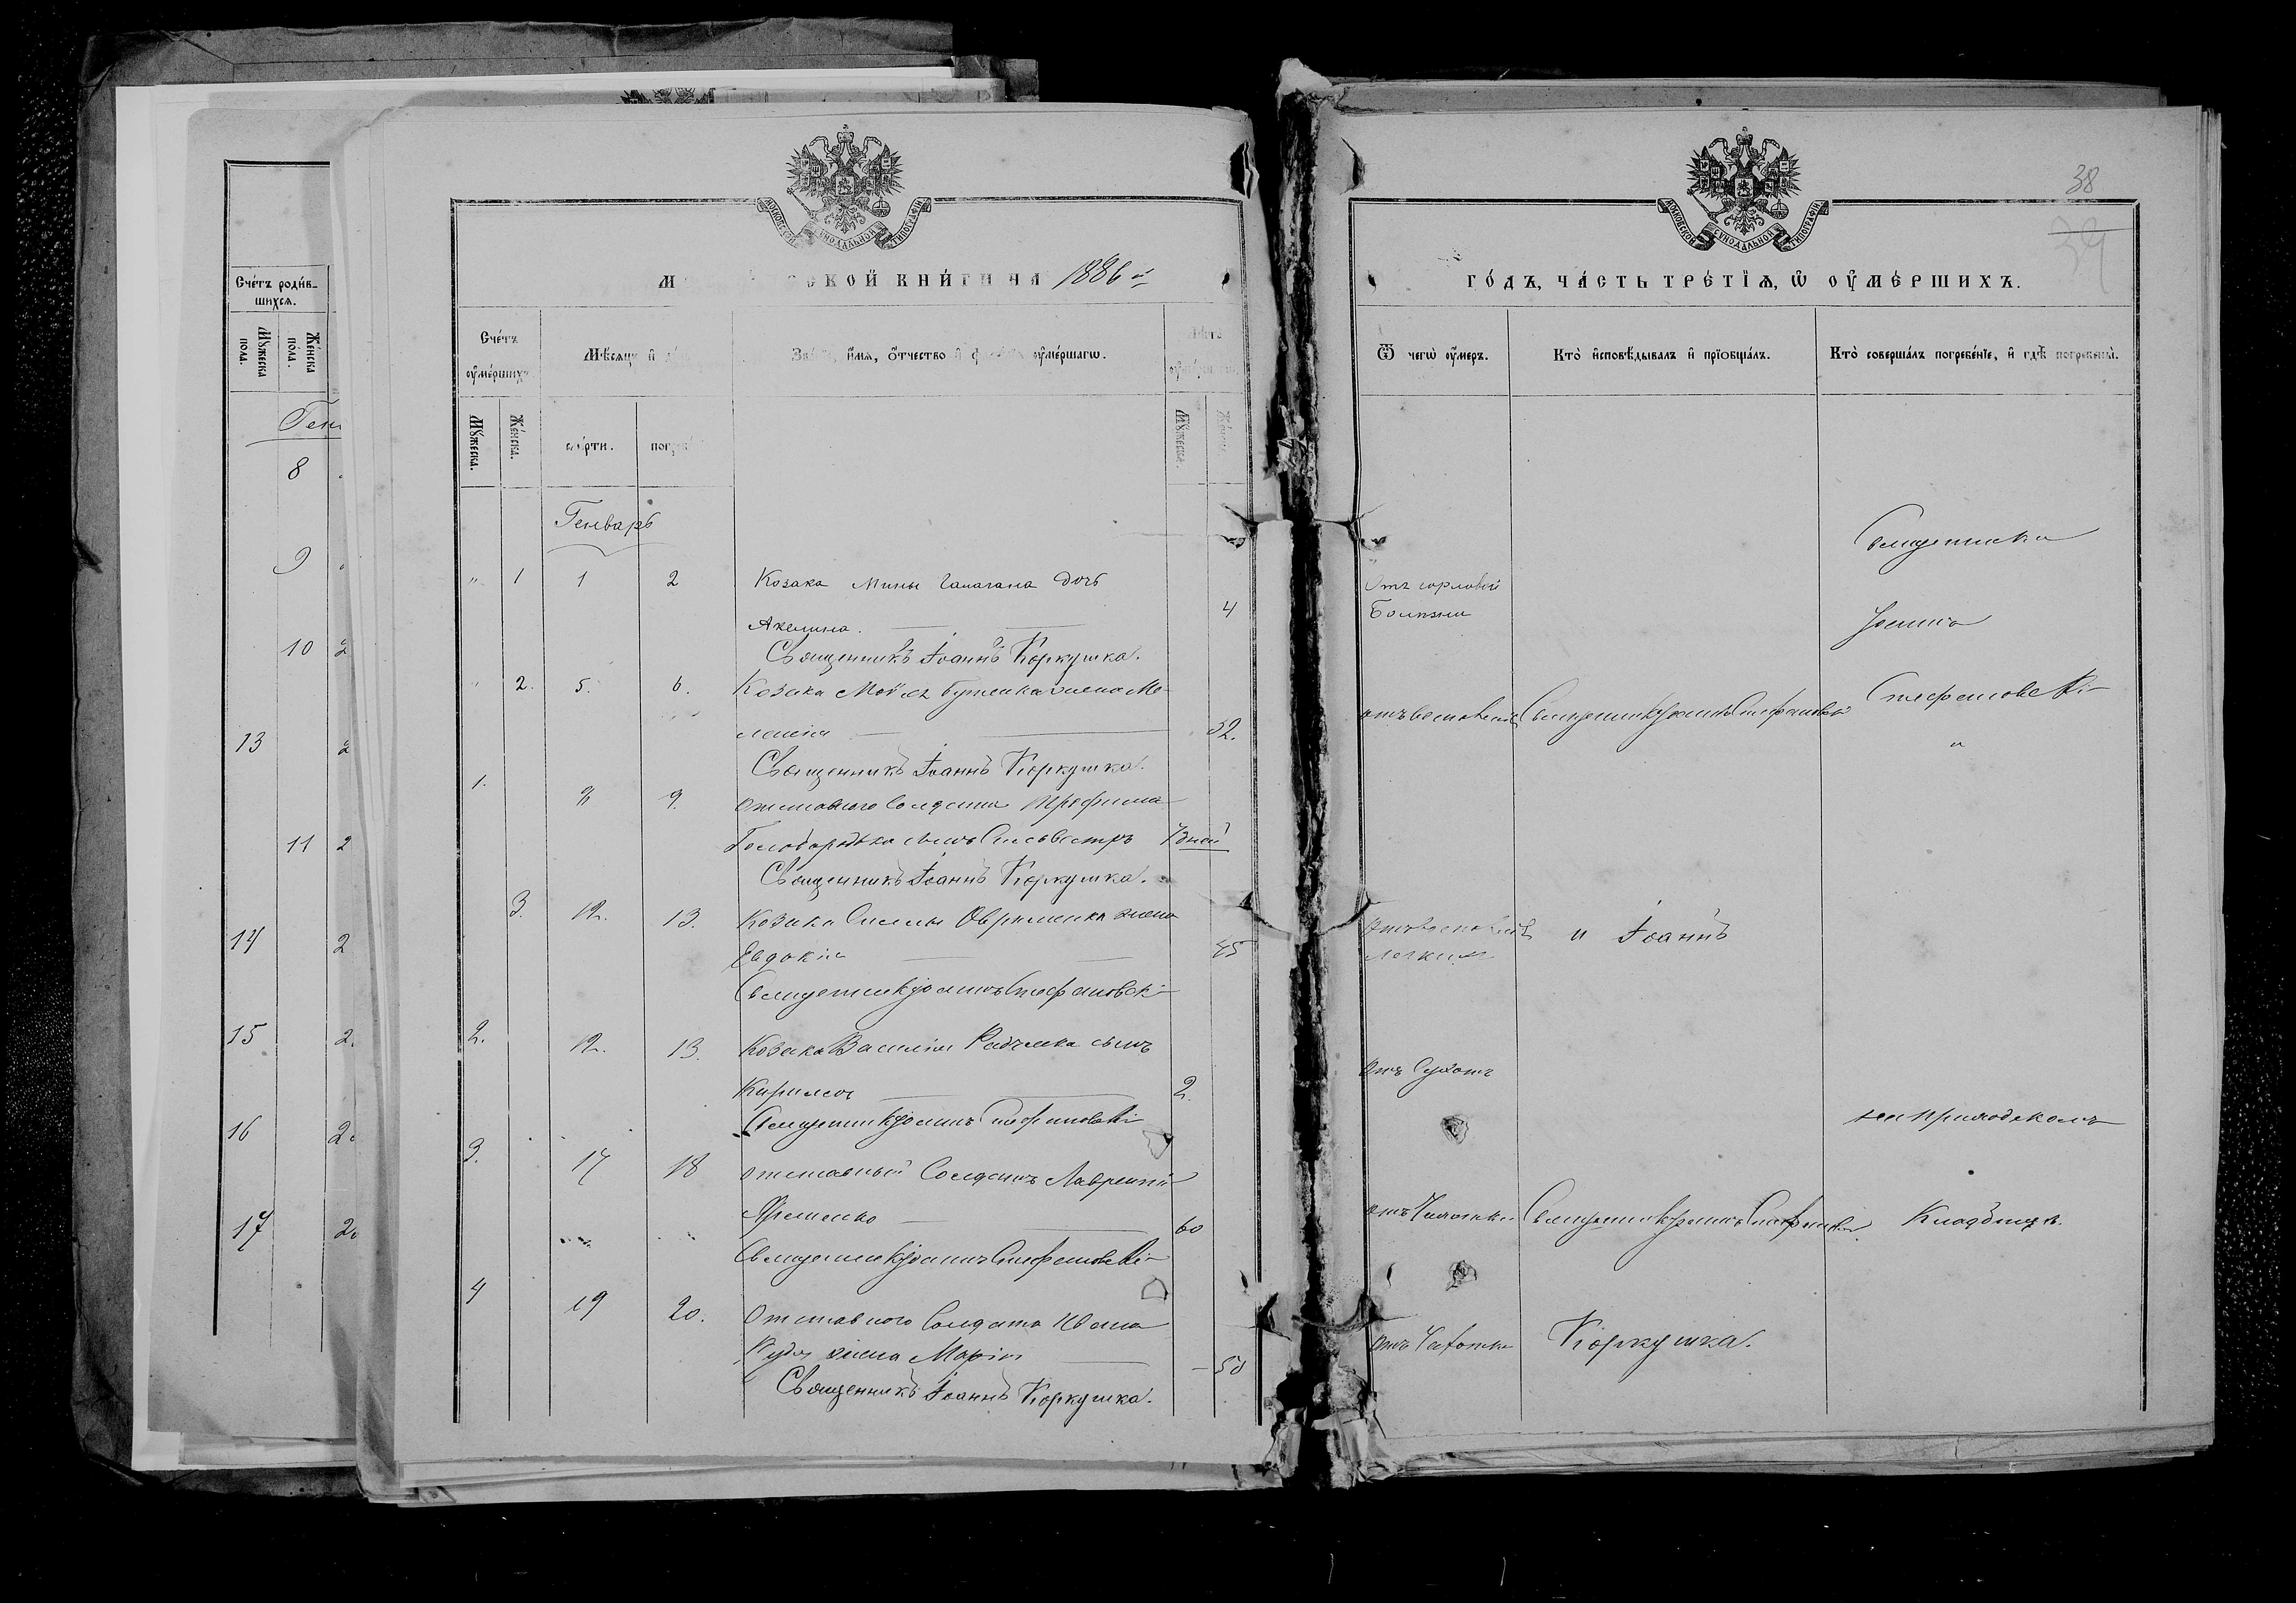 Счéтъ роди́в-
шихсѧ.
Мꙋжеска пола.
Же́нска по́ла.
Ген
8
9
10
13
11 2
14 2
15 2.
16
17
МОСКОВСКОЙ СѴНОДАЛЬНОЙ ТИПОГРАФІИ
М СКОЙ КНИ́ГИ НА 1886 й
Сче́тъ ᲂу҆ме́ршихъ
Мѣ́сяцъ и҆
и҆́мѧ, ѻ҆́тчество и҆ ᲂу҆ме́ршагѡ.
Мꙋ́жеска.
Же́нска.
сме́рти.
Мꙋ́жеска.
Генварь
" 1 1 2 Козака Мины Галагана дочь
Акелина. 4
Священникъ Іоаннъ Коркушка.
" 2. 5. 6. Козака жена Ме-
ланія 52.
Священникъ Іоаннъ Коркушка.
1. 9. Отставного Солдата Трофима
Голобородька сынъ Сильвестръ 7 дней
Священникъ Іоаннъ Коркушка.
3. 12. 13. Козака жена
Евдокія 45
Священникъ Іоаннъ Стефановскій
2. 12. 13. Козака Василія Радченка сынъ
Кирилъ 2.
Священникъ Іоаннъ Стефановскій
3. 17 18 отставный Солдатъ Лаврентій
Яременко 60
Священникъ Іоаннъ Стефановскій
4 19 20. Отставного Солдата Ивана
жена Марія 50
Священникъ Іоаннъ Коркушка.
38
39
МОСКОВСКОЙ СѴНОДАЛЬНОЙ ТИПОГРАФІИ
ГО́ДЪ, ЧА́СТЬ ТРЕ́ТЇѦ, Ѡ҆ ᲂУ҆МЕ́РШИХЪ.
Ѿ чегѡ̀ ᲂу҆́меръ.
Кто̀ и҆сповѣ́дывалъ и҆ прїѡбща́лъ.
Кто̀ соверша́лъ погребе́нїе, и҆ гдѣ̀ погребены̀.
Священики
Отъ горловой
Болѣзни
Іоаннъ
Священникъ Іоаннъ Стефановскій
Стефановскій
и
и Іоаннъ
отъ Сухотъ
на приходскомъ
отъ Чахотки Священникъ Іоаннъ Стефановскій
Кладбищѣ.
отъ Чахотки Коркушка.